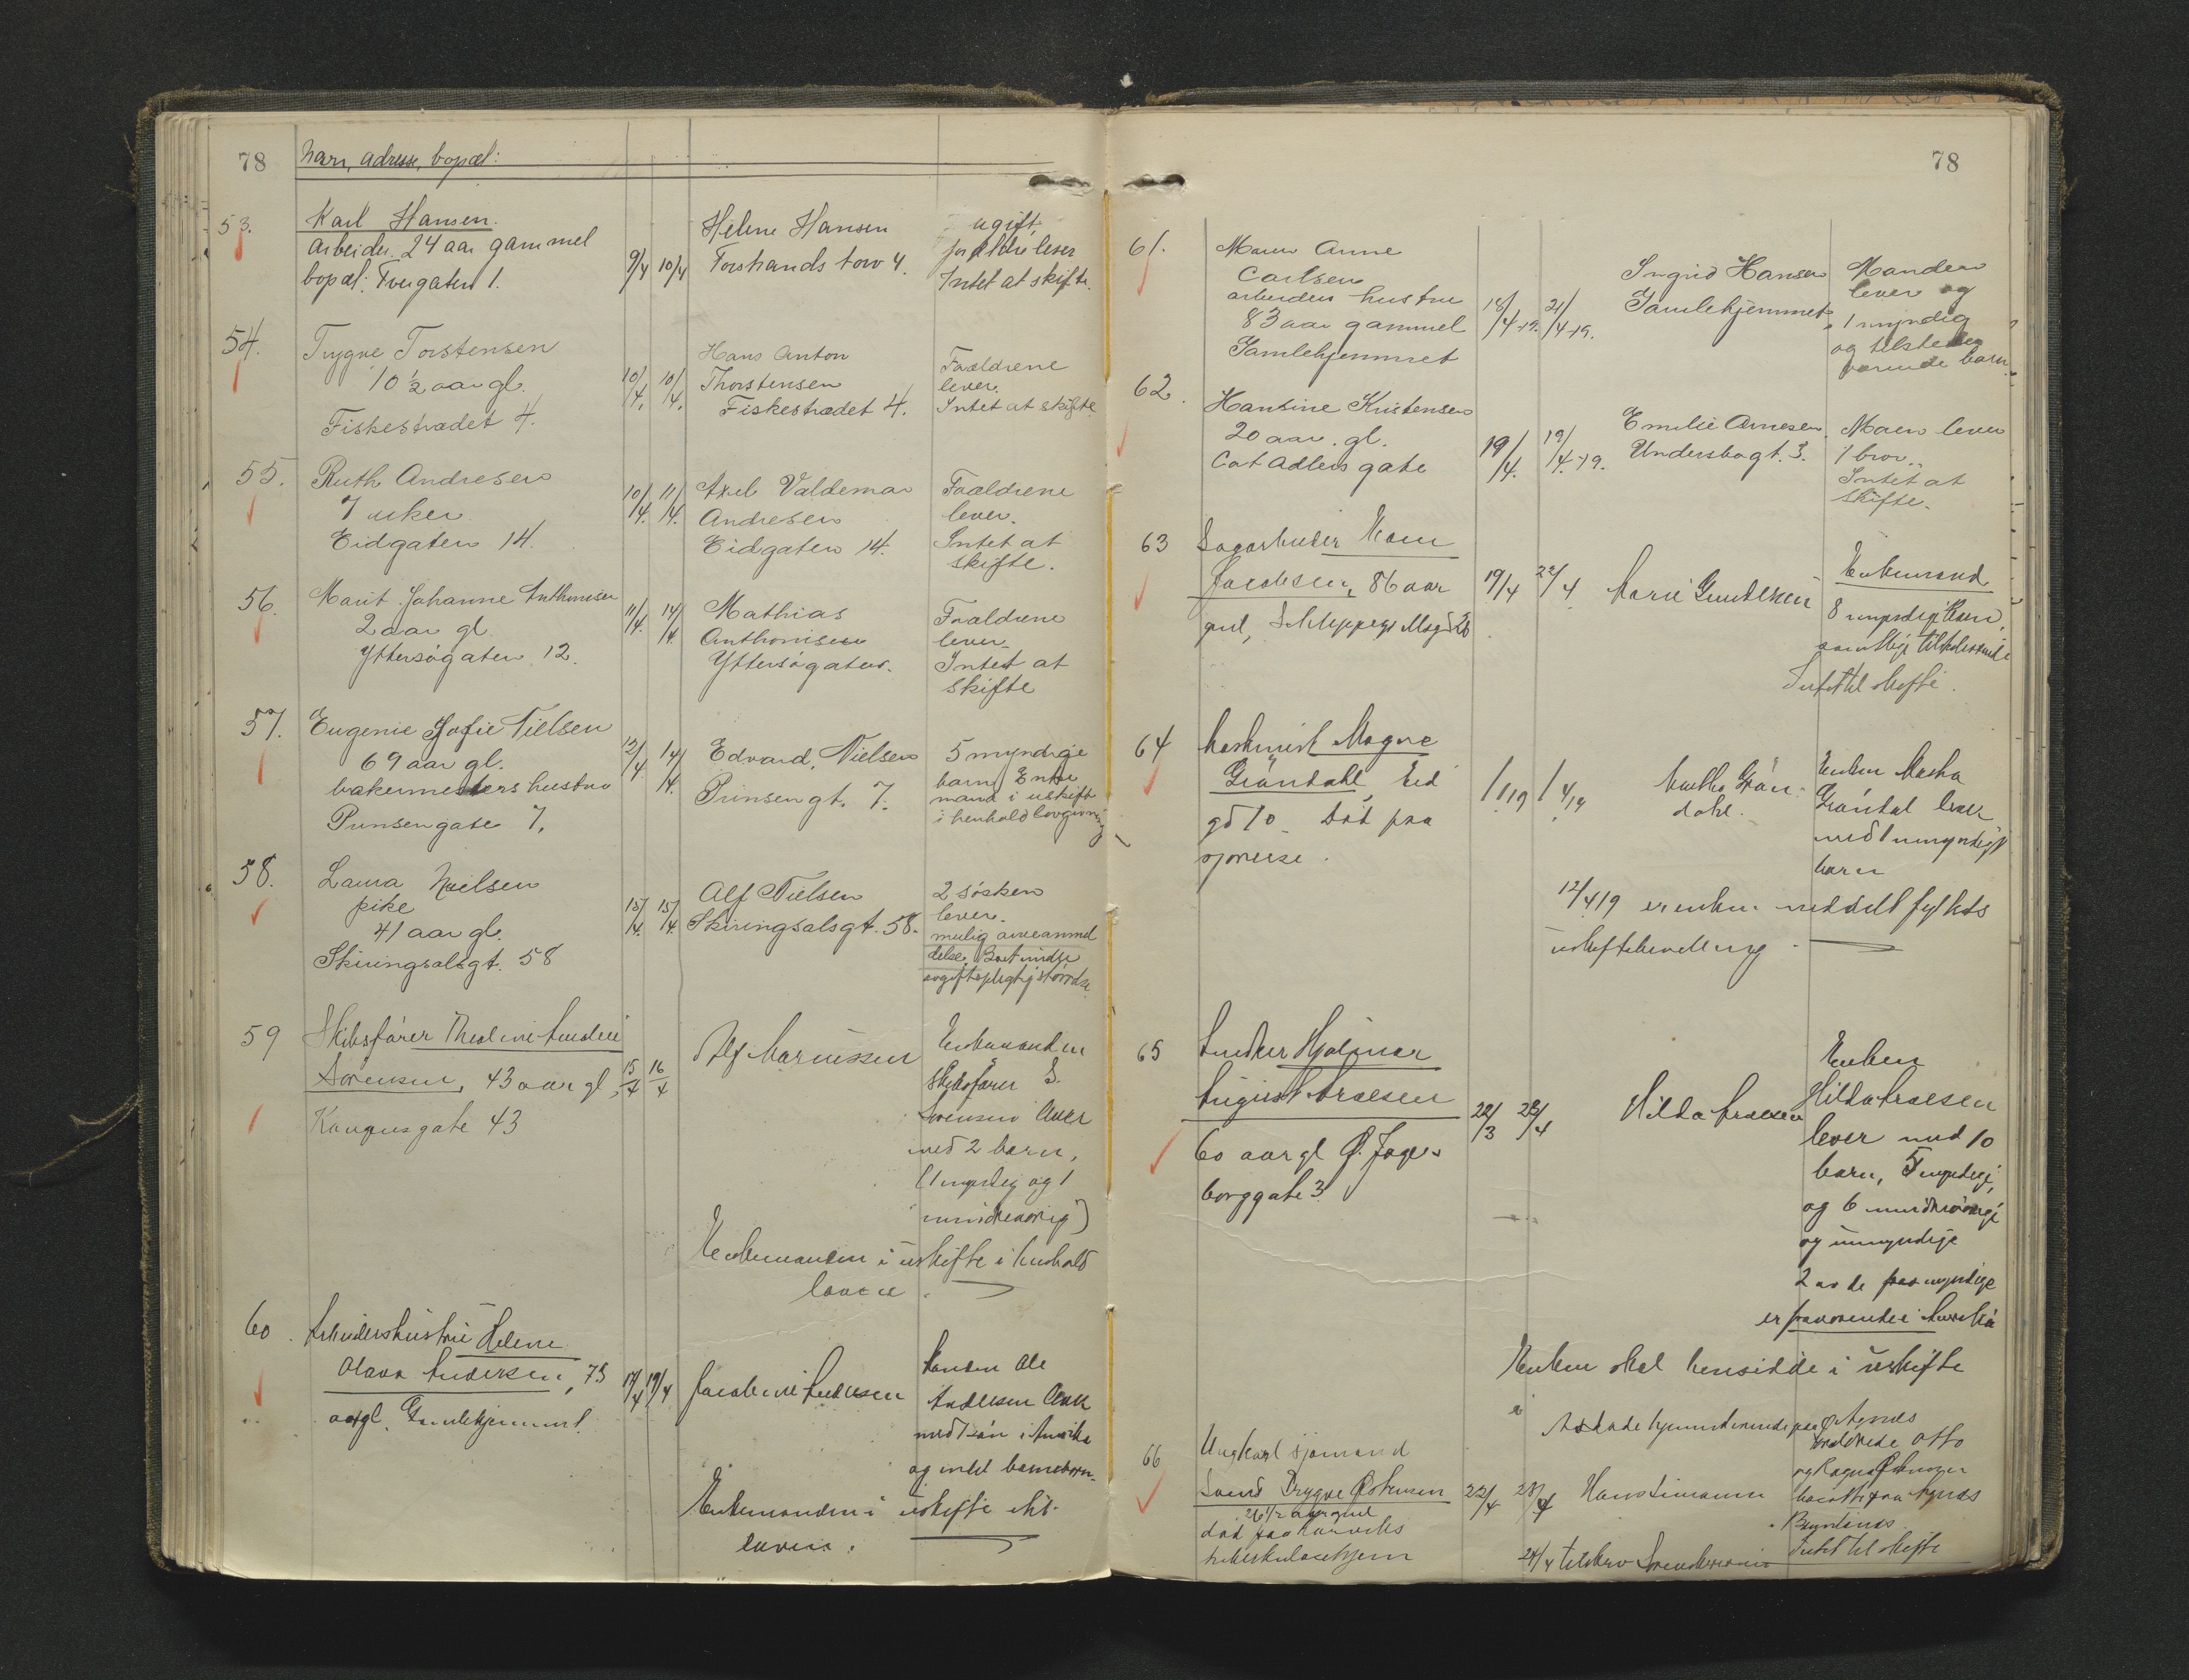 78
Navn, adresse, bopæl:
53.
Karl Hansen.
arbeider. 24 aar gammel
bopæl: Tvergaten 1.
9/4 10/4
Helene Hansen
Torstrands torv 4.
ugift,
forældre lever
Intet at skifte.
54.
Trygve Torstensen
10 ½ aar gl.
Fiskestrædet 4.
10/4. 10/4.
Hans Anton
Thorstensen
Fiskestrædet 4.
Forældrene
lever.
Intet at skifte
55.
Ruth Andresen
7 uker
Eidgaten 14.
10/4. 11/4.
Axel Valdemar
Andresen
Eidgaten 14.
Forældrene
lever.
Intet at
skifte.
56.
Marit Johanne Anthonisen
2 aar gl.
Yttersøgaten 12.
11/4. 14/4
Mathias
Anthonisen
Yttersøgaten.
Forældrene
lever.
Intet at
skifte
57.
Eugenie Sofie Nielsen
69 aar gl.
bakermesters hustru
Prinsengate 7.
12/4 14/4.
Edvard Nielsen
Prinsengt. 7.
5 myndige
barn, Enke
mand i uskift
i henhold lovgivning
58.
Laura Nielsen
pike
41 aar gl.
Skiringsalsgt. 58
15/4. 15/4.
Alf Nielsen
Skiringsalsgt. 58.
2 søsken
lever.
mulig arveanmel
delse. Boet
avgiftspligtig størrelse.
59
Skibsfører
Sørensen, 43 aar gl.
Kaupangate 43
15/4 16/4
Alf
Enkemanden
skibsfører S.
Sørensen lever
med 2 barn,
(1 myndig og 1
mindreaarig)
Enkemanden i uskifte i henhold
loven.
60.
Arbeiderhustru Helene
Olava Andersen, 75
aar gl. Gamlehjemmet.
17/4 19/4
Andersen
Manden Ole
Andersen lever
med 1 søn i Amerika
og intet barnebarn.
Enkemanden i uskifte
loven.
78
61.
Maren Anne
Carlsen
arbeiders hustru
83 aar gammel
Gamlehjemmet
18/4-19. 21/4-19.
Ingrid Hansen
Gamlehjemmet
Manden
lever og
1 myndig
og tilstede
værende barn.
62.
Hansine Kristensen
20 aar. gl.
Cort Adlers gate
19/4. 19/4.-19.
Emilie Arnesen
Undersbogt. 3.
Moren lever
1 bror.
Intet at
skifte.
63
Sagarbeider
Jacobsen, 86 aar
gml,
19/4 22/4
Marie Gundersen
Enkemand
8 myndige barn,
samtlige tilstedeværende
Intet til skifte.
64
Maskinist Magne
Grøndahl, Eid
gd 10. Død paa
sjøreise.
Grøn-
dahl.
Enken
Grøndal lever
med 1 umyndigt
barn
12/4 19 er enken meddelt fylkets
uskiftebevilling.
65
Hjalmar
August
60 aar gl Ø. Jegers
borggate 3.
22/3 23/4
Hilda
Enken
Hilda
lever med 10
barn, 5 myndige,
og 6 mindreaarige
og umyndige
2 av de myndige
er fraværende i Amerika
Enken skal hensidde i uskifte
66
Ungkarl sjømand
Trygve
26 1/2 aar gml
død paa Larviks
tuberkulosehjem
22/4
Agnes
Otto
Agnes
Intet til skifte